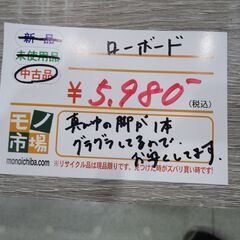 新品
ローボード
未使用品
中古品
¥5,980-
(税込)
モノ市場
monoichiba.com
真ん中の脚が1本
グラグラしてるので、
お安くしてます。
※リサイクル品は現品限りです。見つけた時がズバリ買い時です!